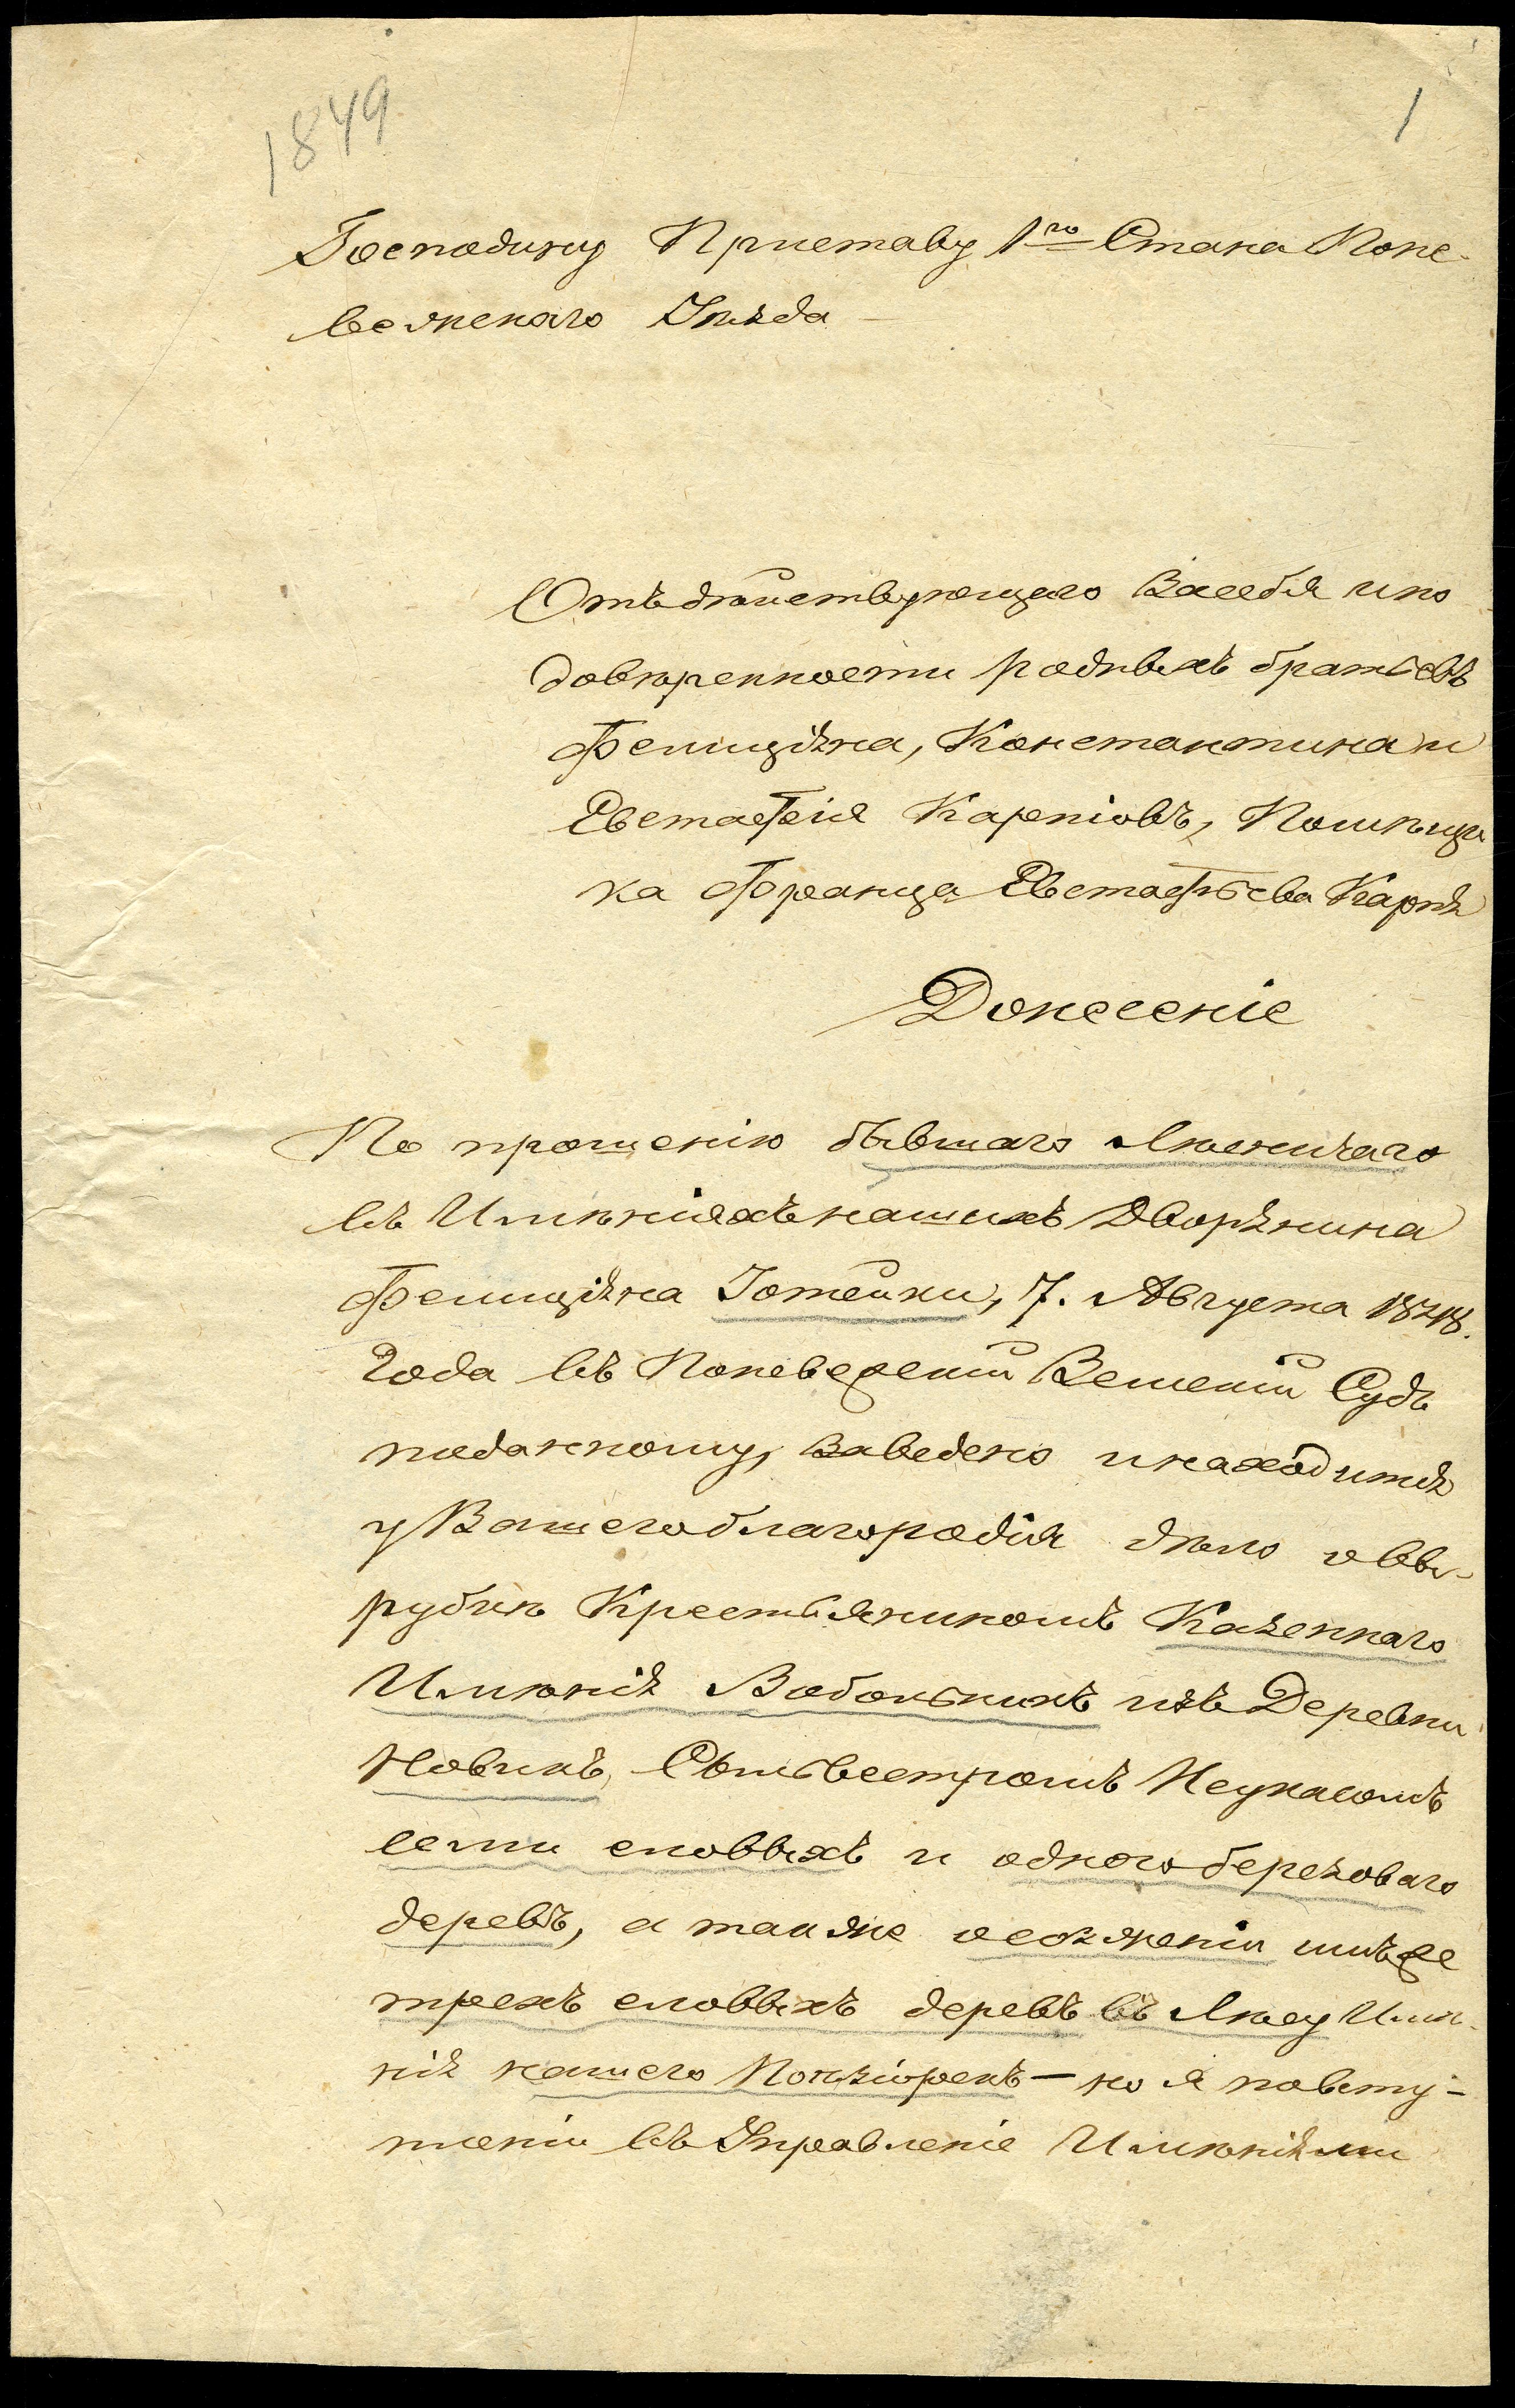 1849
1
Господину Приставу 1го Стана Поне-
вежскаго Уѣзда
Отъ дѣйствующаго Засебя ипо
довѣренности родныхъ братьевъ
Фелиціяна, Константина и
Евстафія Карпіовъ, Помѣщи
ка Франца Евстафьева Карпя
Донесеніе
По прошенію бывшаго Лѣсничаго
въ Имѣніяхъ нашихъ Дворянина
Фелиціяна 7. Августа 1848.
Года въ Поневежскій Земскій Судъ
поданному, Заведено инаходится
у Вашегоблагородія дѣло о Вы-
рубкѣ Крестьяниномъ Казеннаго
Имѣнія изъ Деревни
Новикъ, Сыльвестромъ
семи еловыхъ и одного березоваго
деревъ, а также осозженіи имъже
трехъ еловыхъ деревъ въ Лѣсу Имѣ-
нія нашего — но я повсту-
пленіи въ Управленіе Имѣніями